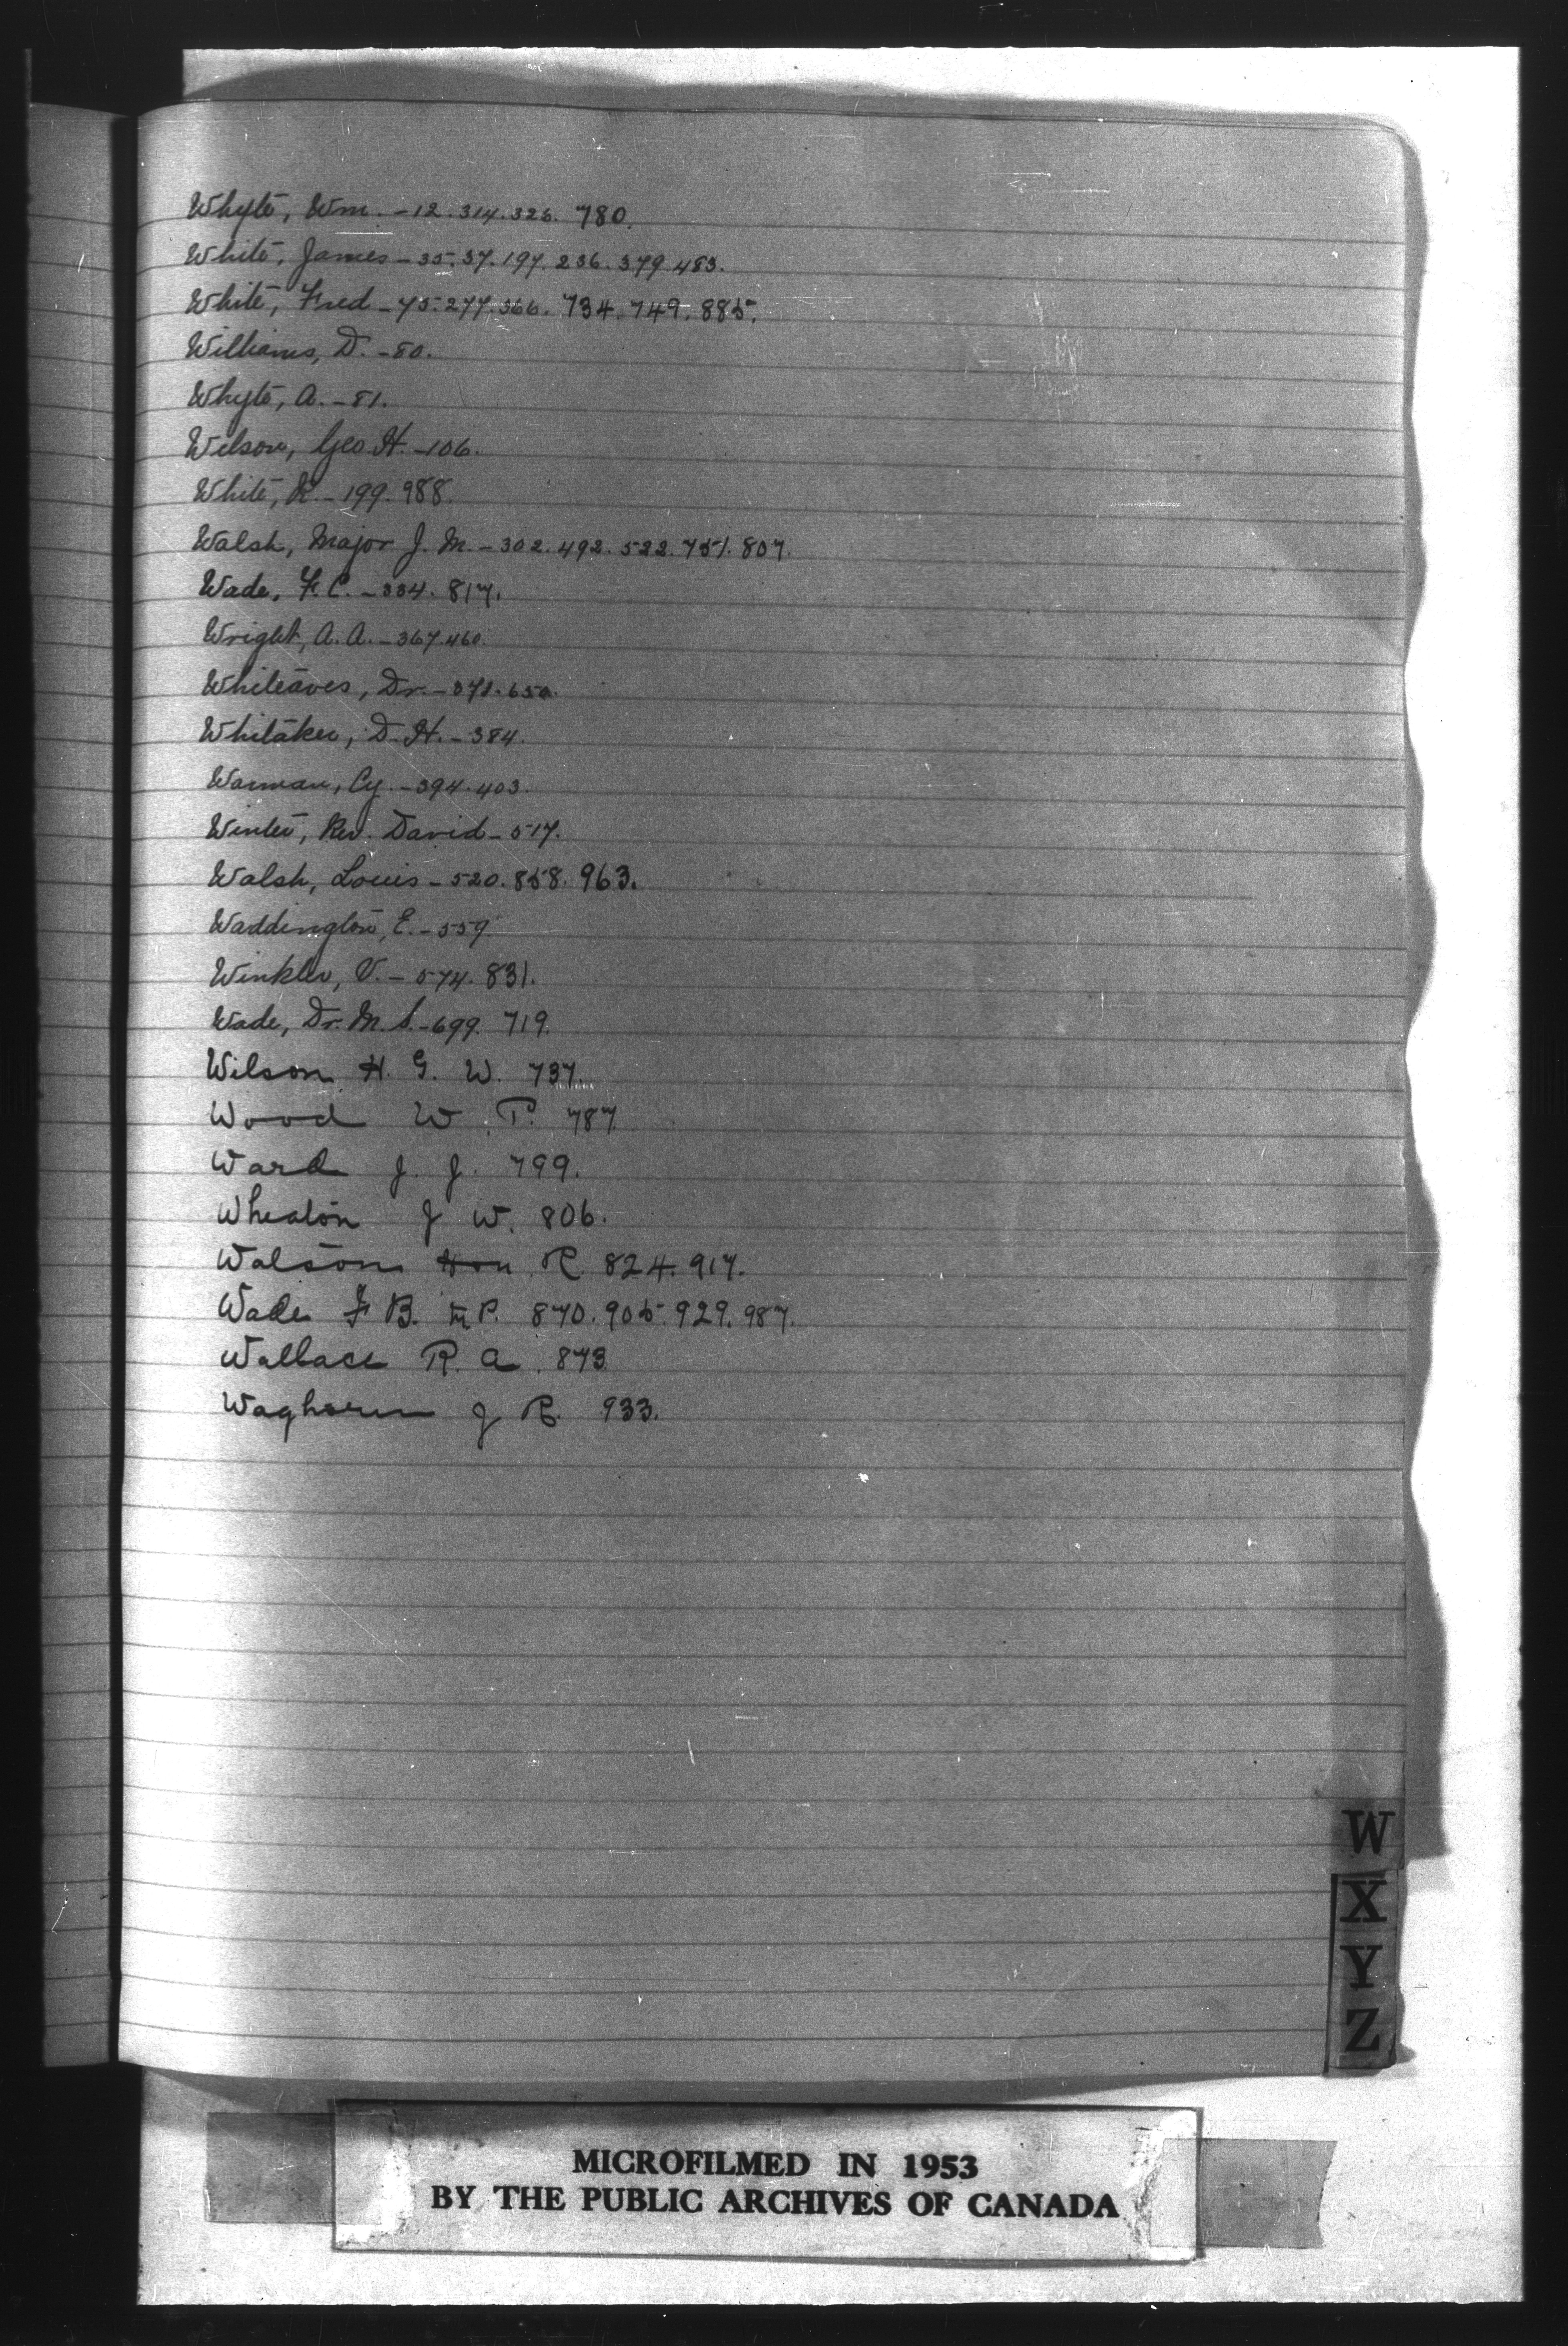 Whyte, Wm. - 12. 314. 326. 780.
White, James - 35. 37. 197. 236. 379. 483.
White, Fred - 75. 277. 366. 734. 749. 885.
Williams, D. - 80.
Whyte, A. - 81.
Wilson, Geo. H. - 106.
White, R. - 199. 988.
Walsh, Major J. M. - 302. 492. 522. 751. 807.
Wade, F. C. - 334. 817.
Wright, A. A. - 367. 460.
Whiteaves, Dr. - 371. 650.
Whitaker, D. H. - 384.
Warman, Cy. - 394. 403.
Winter, Rev. David - 517.
Walsh, Louis - 520. 858. 963.
Waddington, E. - 559.
Winkler, V. - 574. 831.
Wade, Dr. M. S. - 699. 719.
Wilson H. G. W. 737.
Wood W. P. 787
Ward J. J. 799.
Wheaton J W. 806.
Watson Hon R. 824. 917.
Wade F B. M.P. 870. 905. 929. 987.
Wallace R. A. 873
Waghorn J R. 933.
W
X
Y
Z
MICROFILMED IN 1953
BY THE PUBLIC ARCHIVES OF CANADA